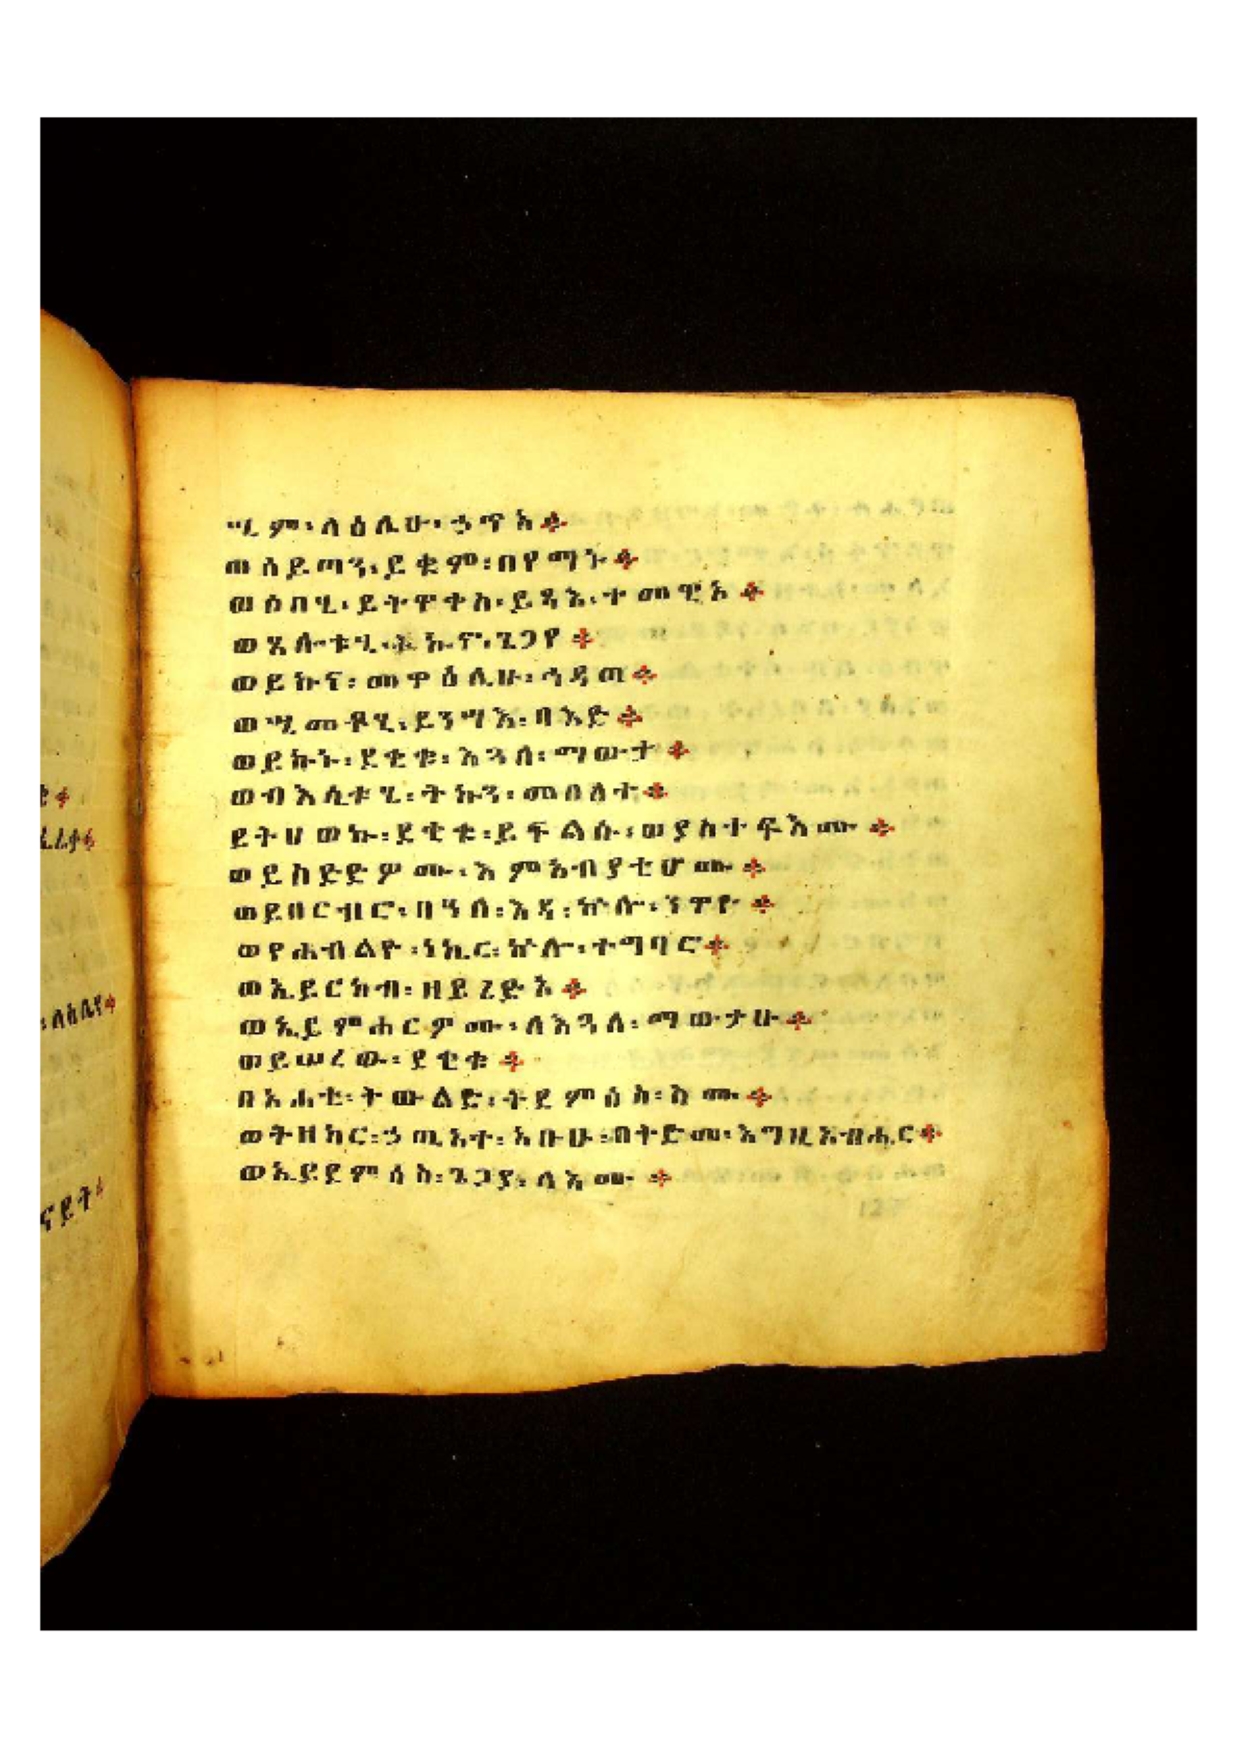 ሢም፡ላዕሌሁ፡ኃጥአ፨
ወሰይጣን፡ይቁም፡በየማኑ፨
ወሶበሂ፡ይትዋቀስ፡ይጻእ፡ተመዊኦ፨
ወጸሎቱሂ፡ትኩኖ፡ጌጋየ፨
ወይኩና፡መዋዕሊሁ፡ኅዳጠ፨
ወሢመቶሂ፡ይንሣእ፡ባእድ፨
ወይኩኑ፡ደቂቁ፡እጓለ፡ማውታ፨
ወብእሲቱሂ፡ትኩን፡መበለተ፨
ይትሀወኩ፡ደቂቁ፡ይፍልሱ፡ወያስተፍእሙ፨
ወይስድድዎሙ፡እምአብያቲሆሙ፨
ወይበርብሮ፡በዓለ፡እዳ፡ኵሎ፡ንዋዮ፨
ወየሐብልዮ፡ነኪር፡ኵሎ፡ተግባሮ፨
ወኢይርከብ፡ዘይረድኦ፨
ወኢይምሐርዎሙ፡ለእጓለ፡ማውታሁ፨
ወይሠረው፡ደቂቁ፨
በአሐቲ፡ትውልድ፡ትደምሰስ፡ስሙ፨
ወትዘከር፡ኃጢአተ፡አቡሁ፡በቅድመ፡እግዚአብሔር፨
ወኢይደምሰስ፡ጌጋያ፡ለእሙ፨